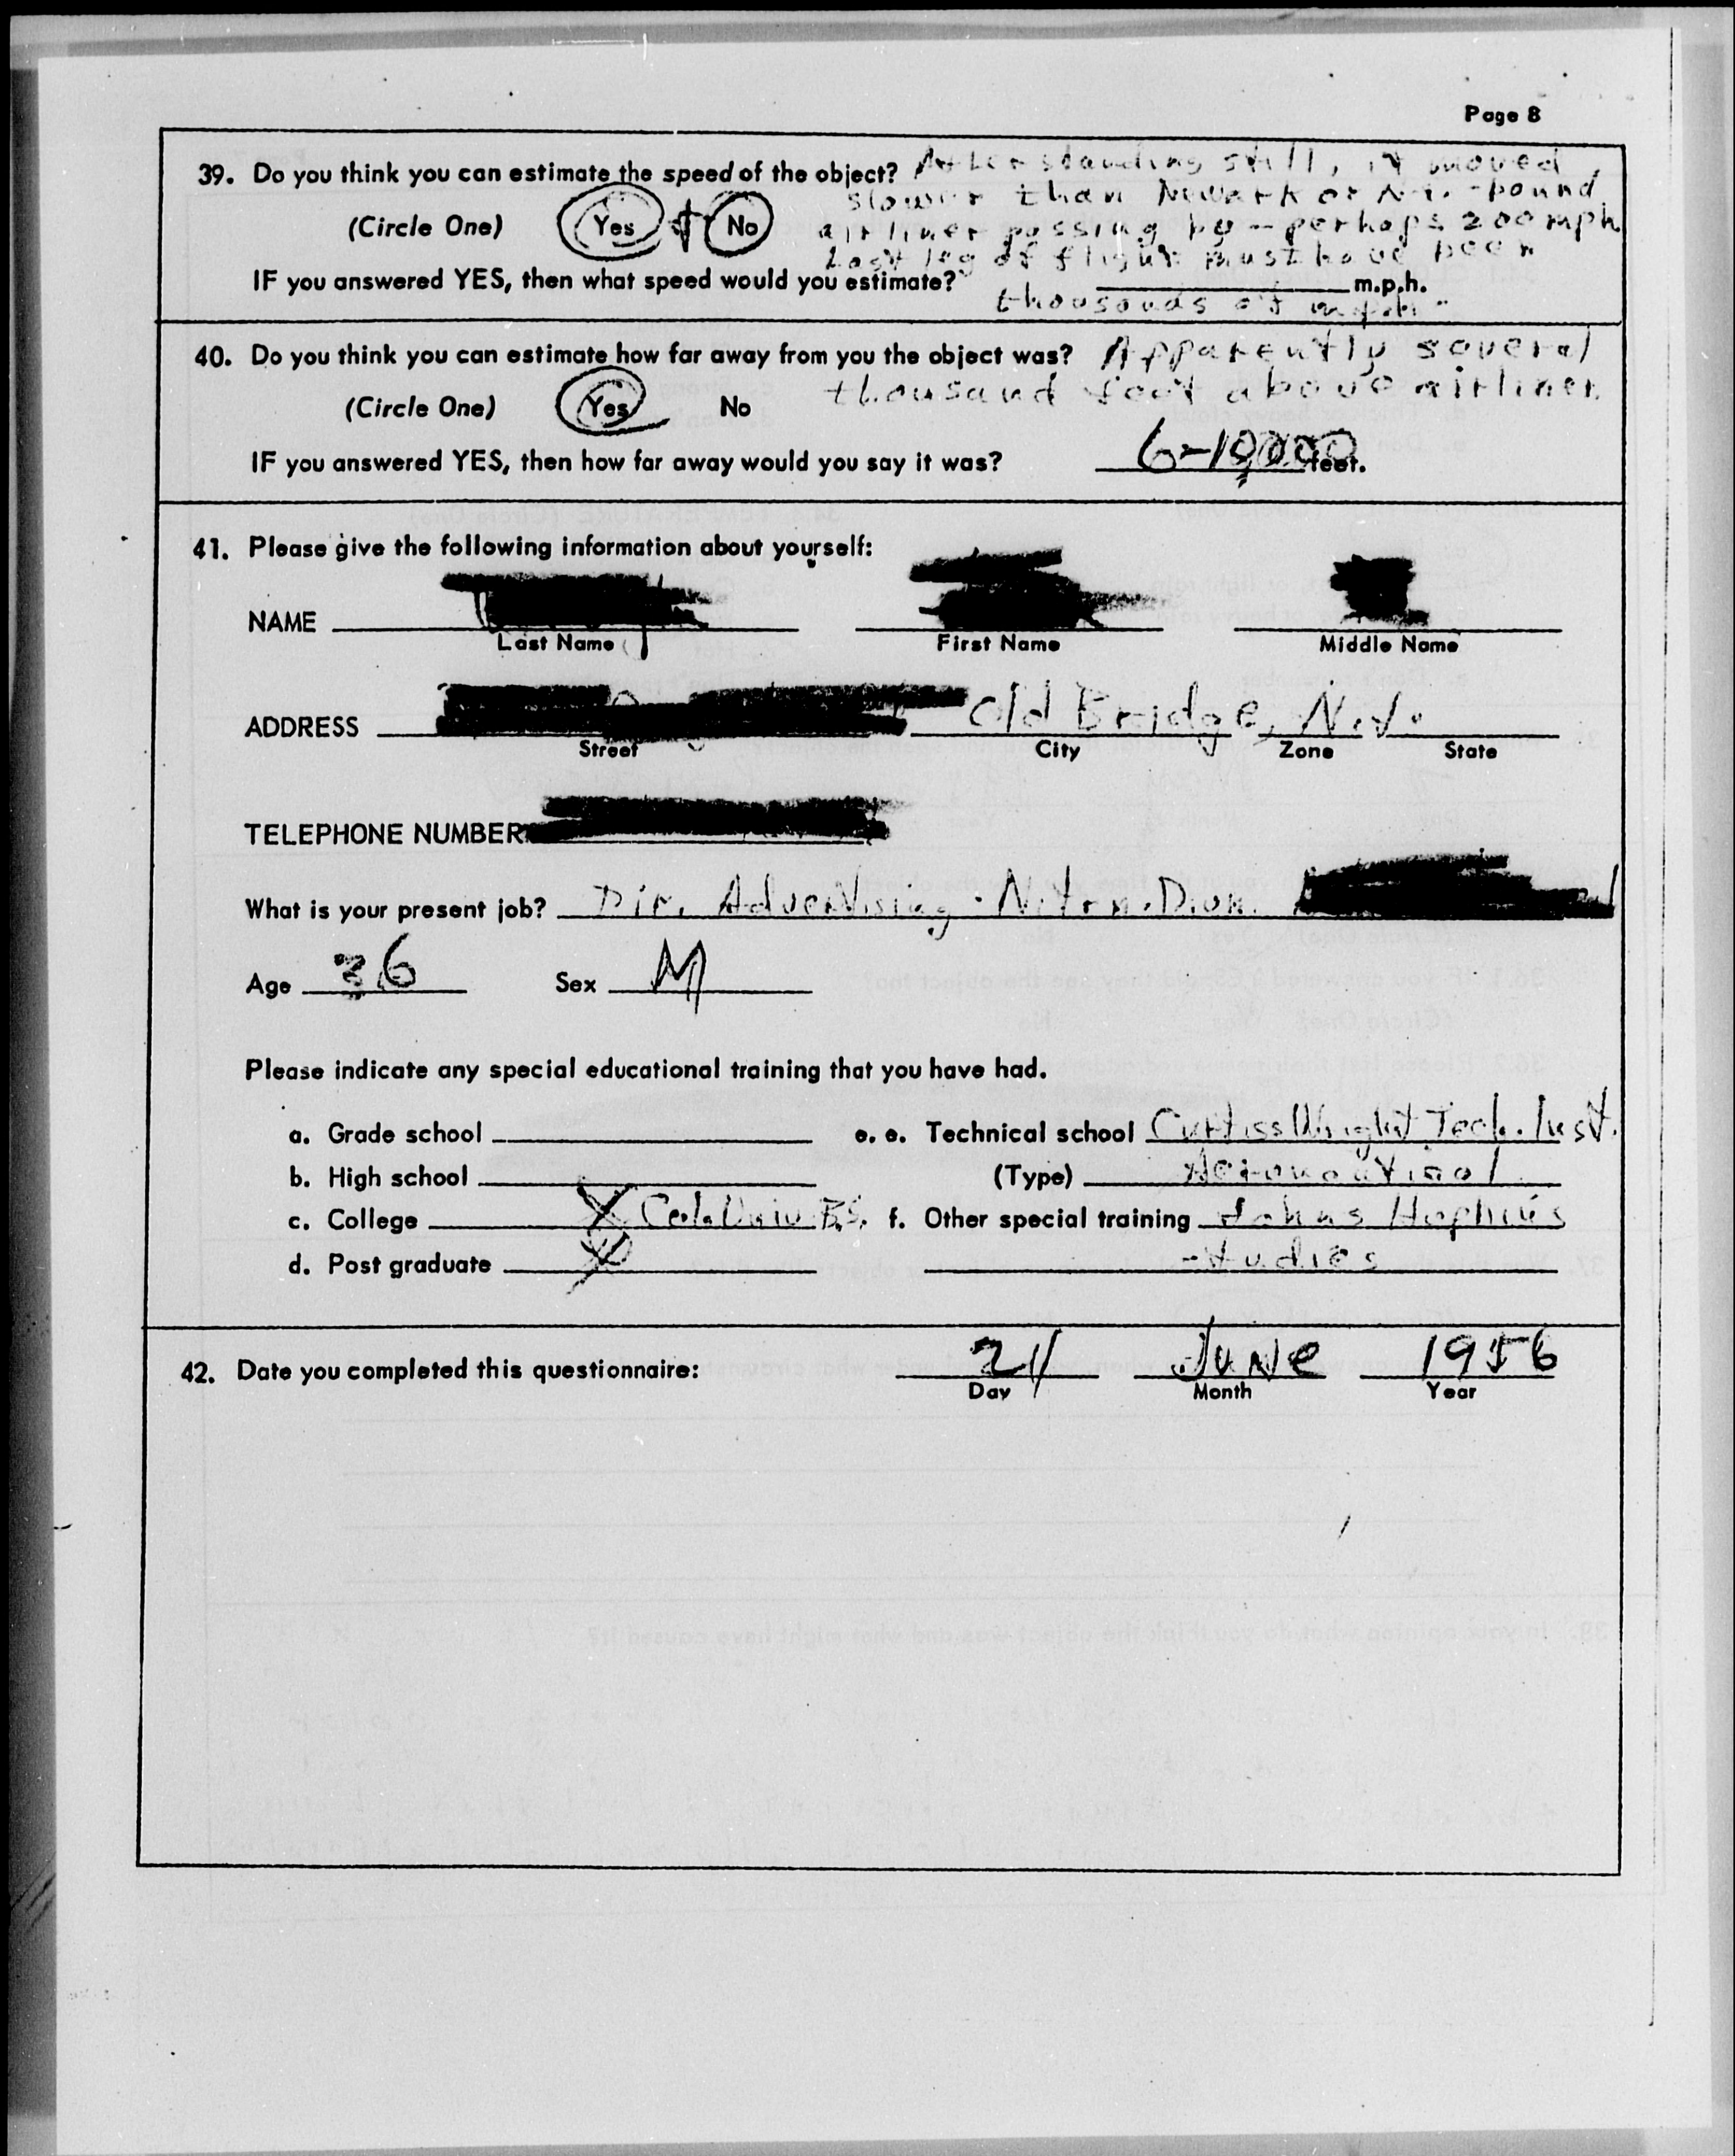 Page 8
39. Do you think you can estimate the speed of the object? After standing still, it moved
slower than Newark or N.Y. - bound
(Circle One) Yes & No airliner passing by - perhaps 200 mph.
Last leg of flight must have been
IF you answered YES, then what speed would you estimate? m.p.h.
thousands of m.p.h.
40. Do you think you can estimate how far away from you the object was? Apparently several
(Circle One) Yes No thousand feet above airliner.
IF you answered YES, then how far away would you say it was? 6-10,000 feet.
41. Please give the following information about yourself:
NAME
Last Name First Name Middle Name
ADDRESS Old Bridge, N.J.
Street City Zone State
TELEPHONE NUMBER
What is your present job? Dir. Advertising - Nitrn. Divn.
Age 36 Sex M
Please indicate any special educational training that you have had.
a. Grade school e. e. Technical school Curtiss Wright Tech. Inst.
b. High school (Type) Aeronautical
c. College X Col. Univ. B.S. f. Other special training Johns Hopkins
d. Post graduate X - studies
42. Date you completed this questionnaire: 21 June 1956
Day Month Year